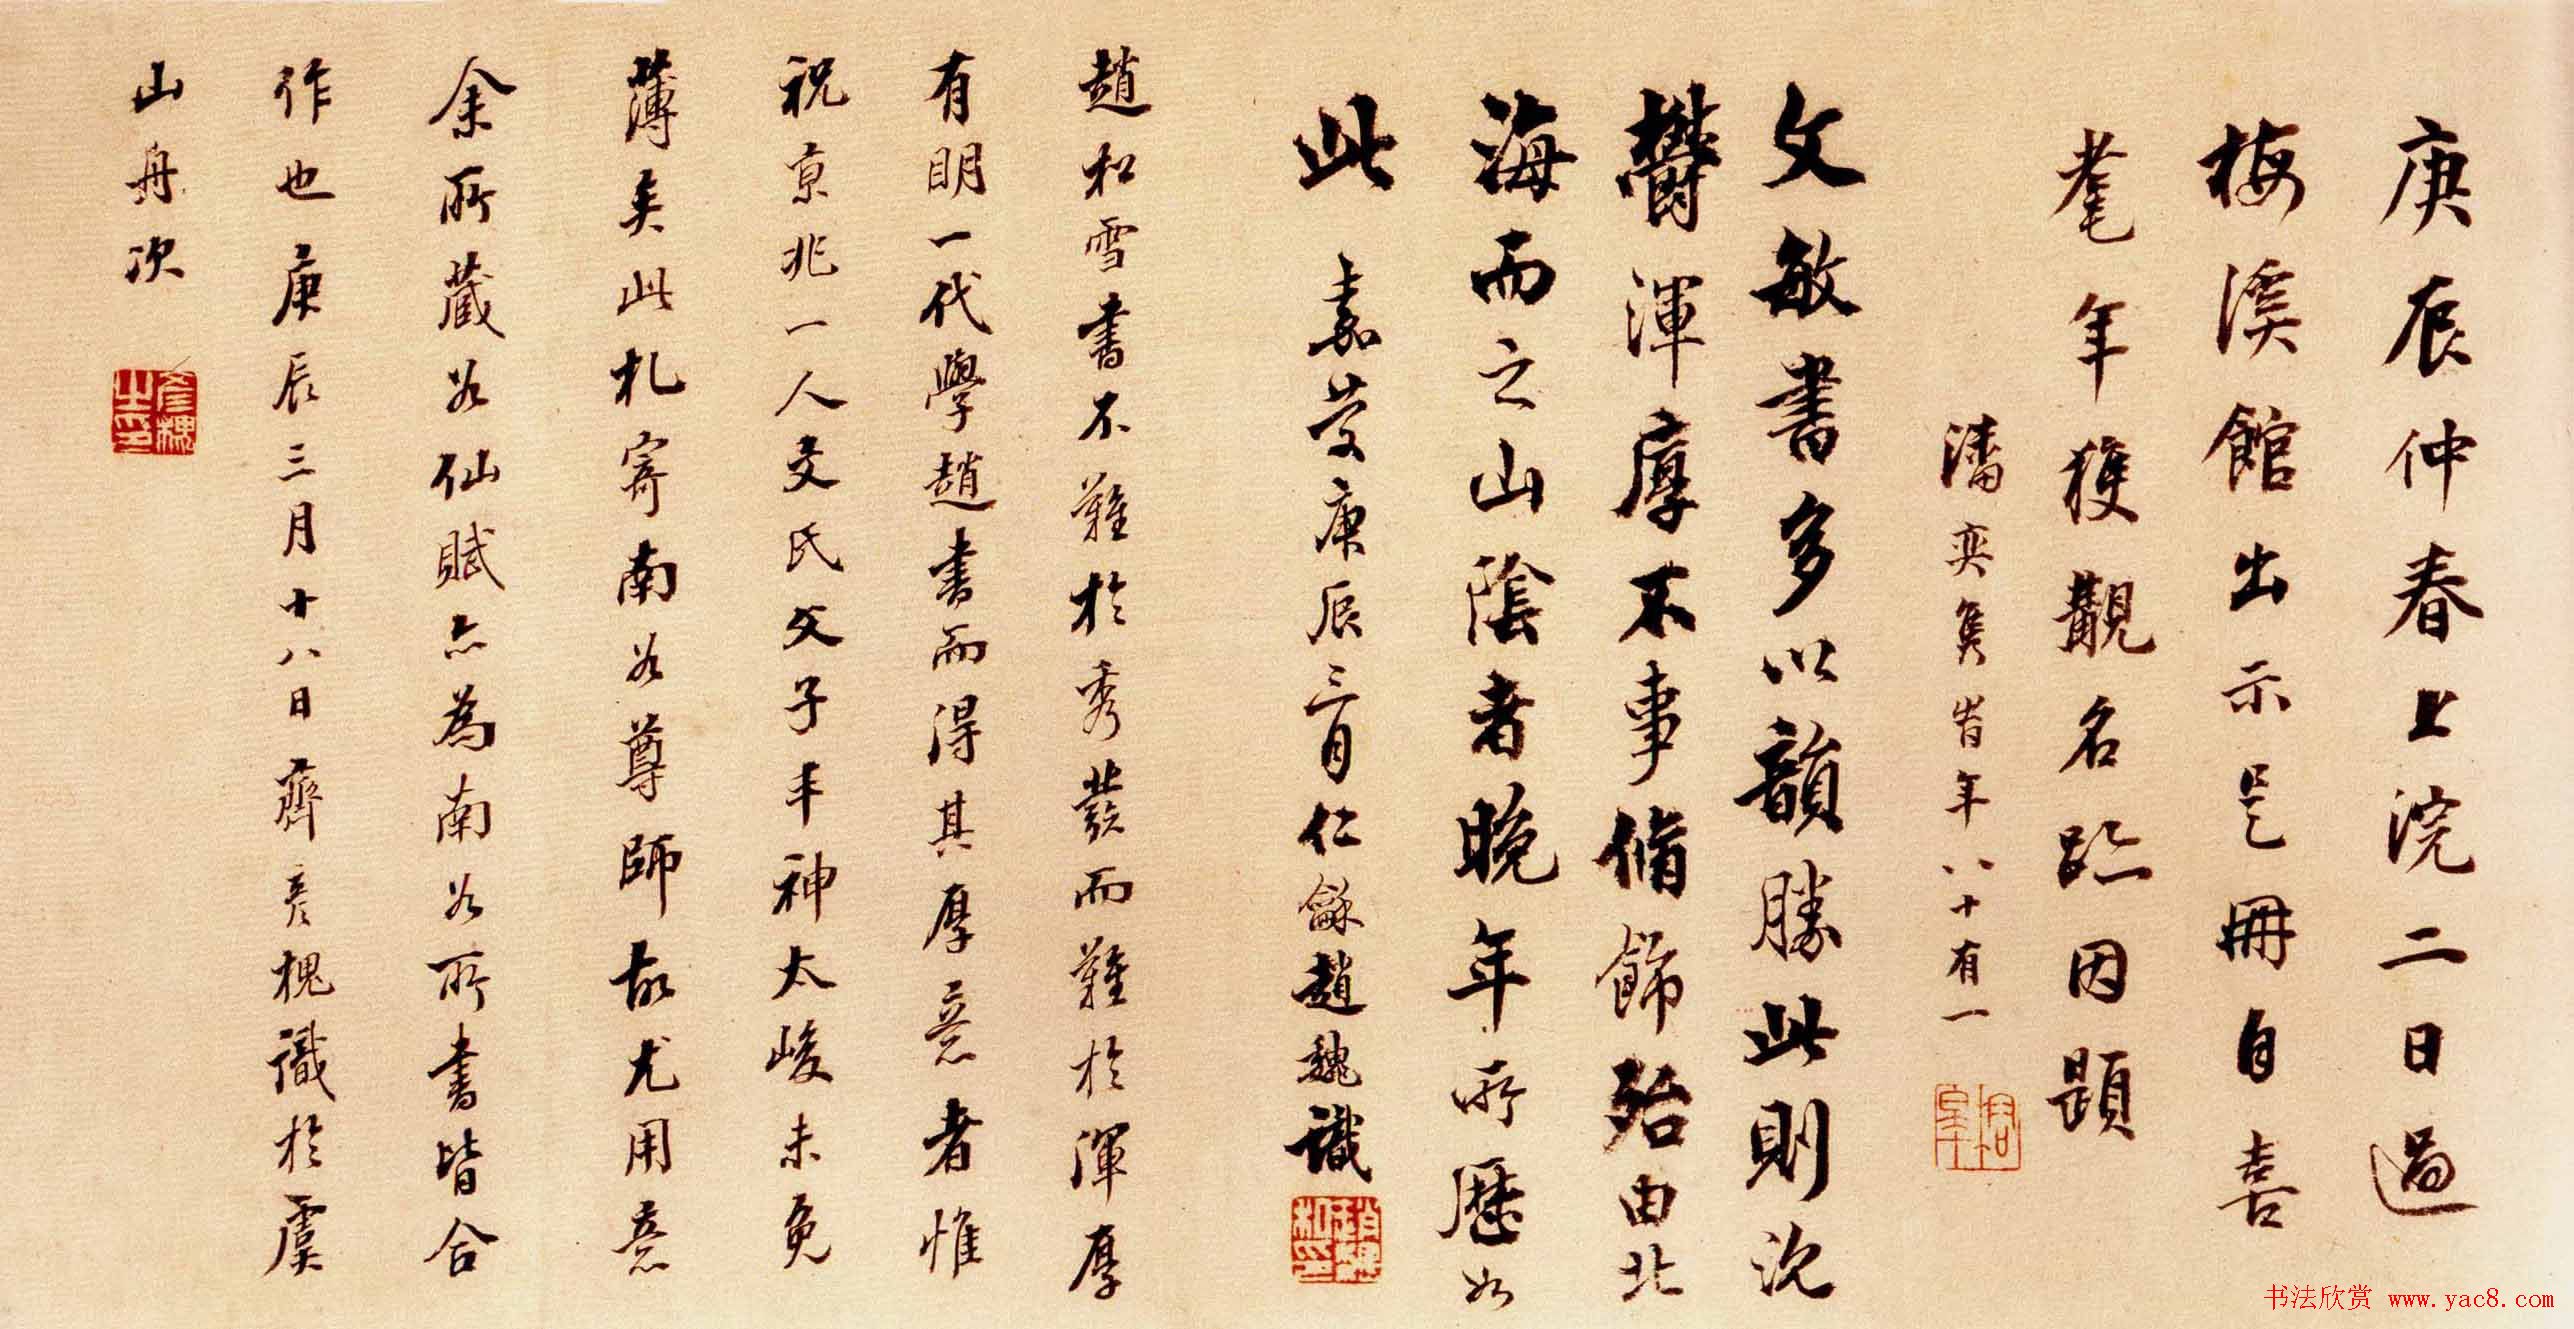 庚辰仲春上浣二日過
梅溪館出示是冊自喜
耄年獲觀名跡因題
潘奕雋時年八十有一
文敏書多以韻勝此則沈
鬱渾厚不事脩飾殆由北
海而之山陰者晚年所歷如
此 嘉慶庚辰三月仁龢趙魏識
趙松雪書不難於秀發而難於渾厚
有明一代學趙書而得其厚意者惟
祝京兆一人文氏父子丰神太峻未免
薄矣此札寄南谷尊師故尤用意
余所藏谷仙賦亦為南谷所書皆合
作也庚辰三月十八日齊彥槐識於虞
山舟次
书法欣赏 www.yac8.com